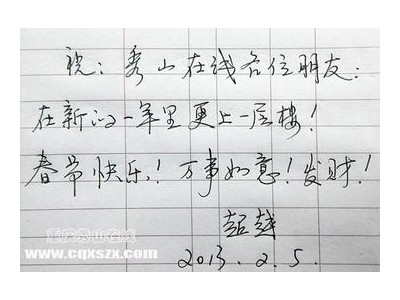 祝：秀山在线各位朋友：
在新的一年里更上一层楼！
春节快乐！万事如意！发财！
超越
2013.2.5.
重庆秀山在线
www.cqxszx.com